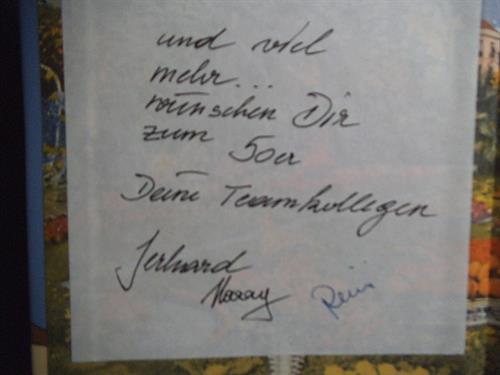 und viel
mehr...
wünschen Dir
zum
50er
Deine Teamkollegen
Gerhard